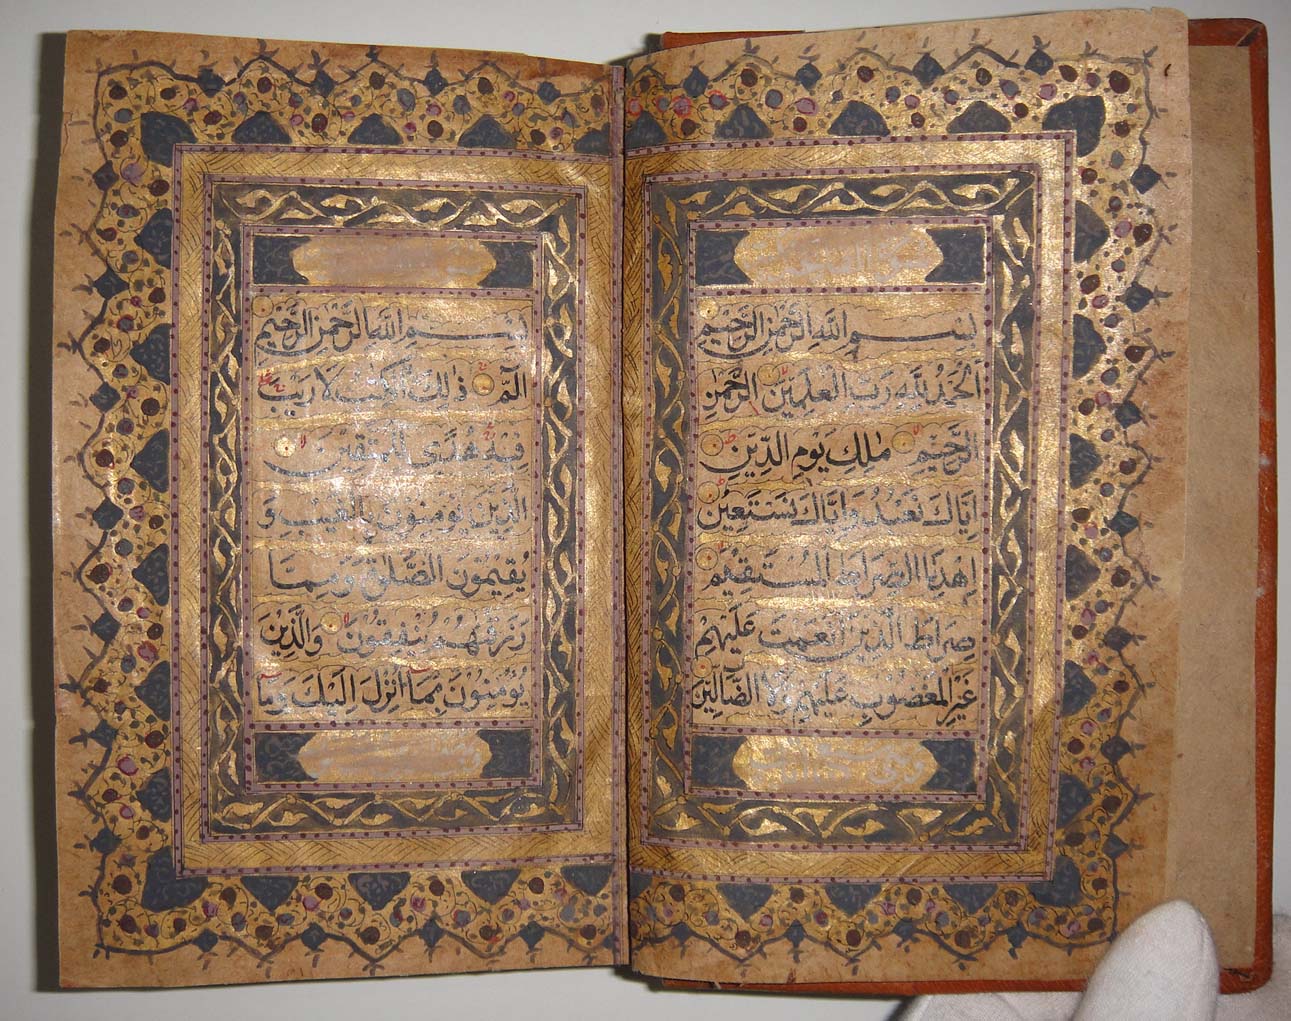 بِسْمِ اللَّهِ الرَّحْمَٰنِ الرَّحِيمِ
اَلْحَمْدُ لِلَّهِ رَبِّ الْعٰلَمِينَ الرَّحْمٰنِ
الرَّحِيمِ مٰلِكِ يَوْمِ الدِّينِ
اِيَّاكَ نَعْبُدُ وَاِيَّاكَ نَسْتَعِينُ
اِهْدِنَا الصِّرَاطَ الْمُسْتَقِيمَ
صِرَاطَ الَّذِينَ اَنْعَمْتَ عَلَيْهِمْ
غَيْرِ الْمَغْضُوبِ عَلَيْهِمْ وَلَا الضَّالِّينَ
بِسْمِ اللَّهِ الرَّحْمٰنِ الرَّحِيمِ
الٓمٓ ذٰلِكَ الْكِتٰبُ لَا رَيْبَ
فِيهِ هُدًى لِلْمُتَّقِينَ
الَّذِينَ يُؤْمِنُونَ بِالْغَيْبِ وَ
يُقِيمُونَ الصَّلٰوةَ وَمِمَّا
رَزَقْنٰهُمْ يُنْفِقُونَ وَالَّذِينَ
يُؤْمِنُونَ بِمَا اُنْزِلَ اِلَيْكَ وَمَا